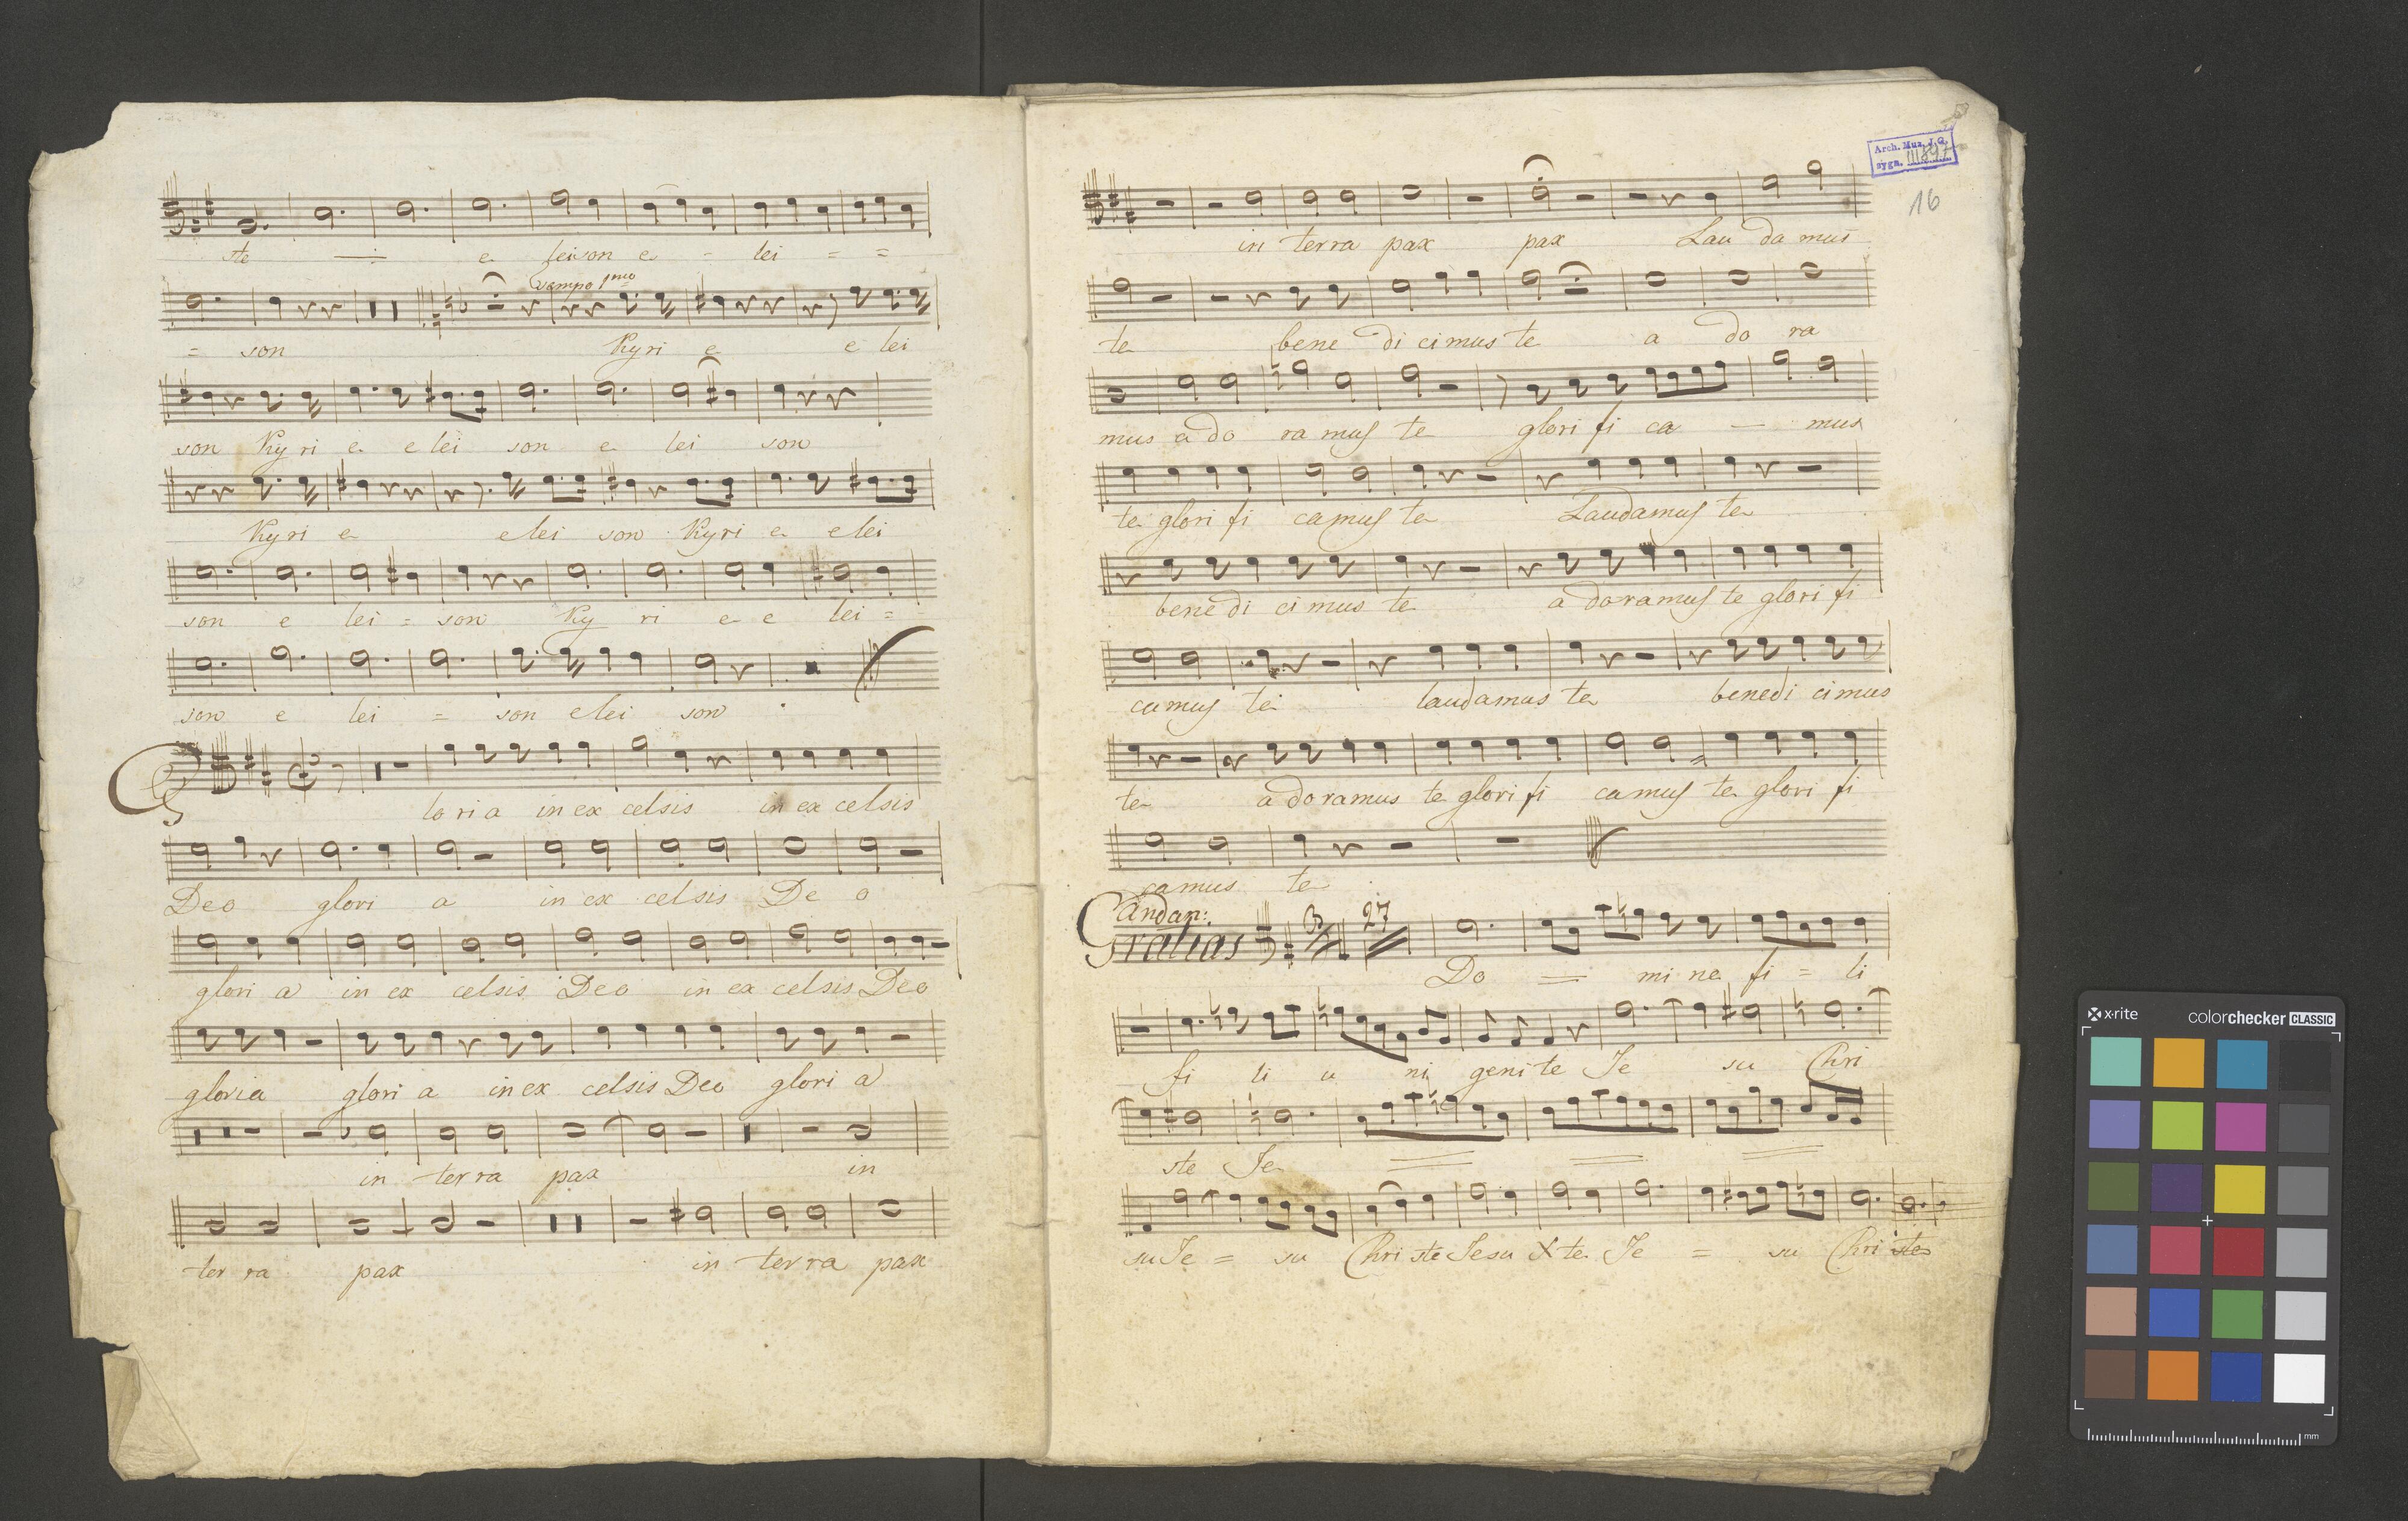 ste e leison e - lei = =
Tempo 1mo
= son Kyri e e lei
son Ky ri e e lei son e lei son
Kyri e elei son Kyri e elei
son e lei = son Ky ri e e lei =
son e lei = son elei son
G lo ri a in ex celsis in ex celsis
Deo glori a in ex celsis De o
glori a in ex celsis Deo in ex celsis Deo
gloria glori a in ex celsis Deo glori a
in ter ra pax in
ter ra pax in ter ra pax
Arch. Muz. J.G.
sygn. III 897
16
in ter ra pax pax Lau da mus
te bene di cimus te a do ra
mus a do ra mus te glori fi ca — mus
te glori fi camus te Laudamus te
bene di ci mus te a doramus te glori fi
camus te laudamus te benedi cimus
te a doramus te glori fi camus te glori fi
camus te
Andan:
Gratias 3 27
Do = mi ne fi = li
fi li u ni geni te Je su Chri
ste Je
su Je = su Chri ste Jesu Xte Je = su Chri ste
x-rite colorchecker CLASSIC
mm